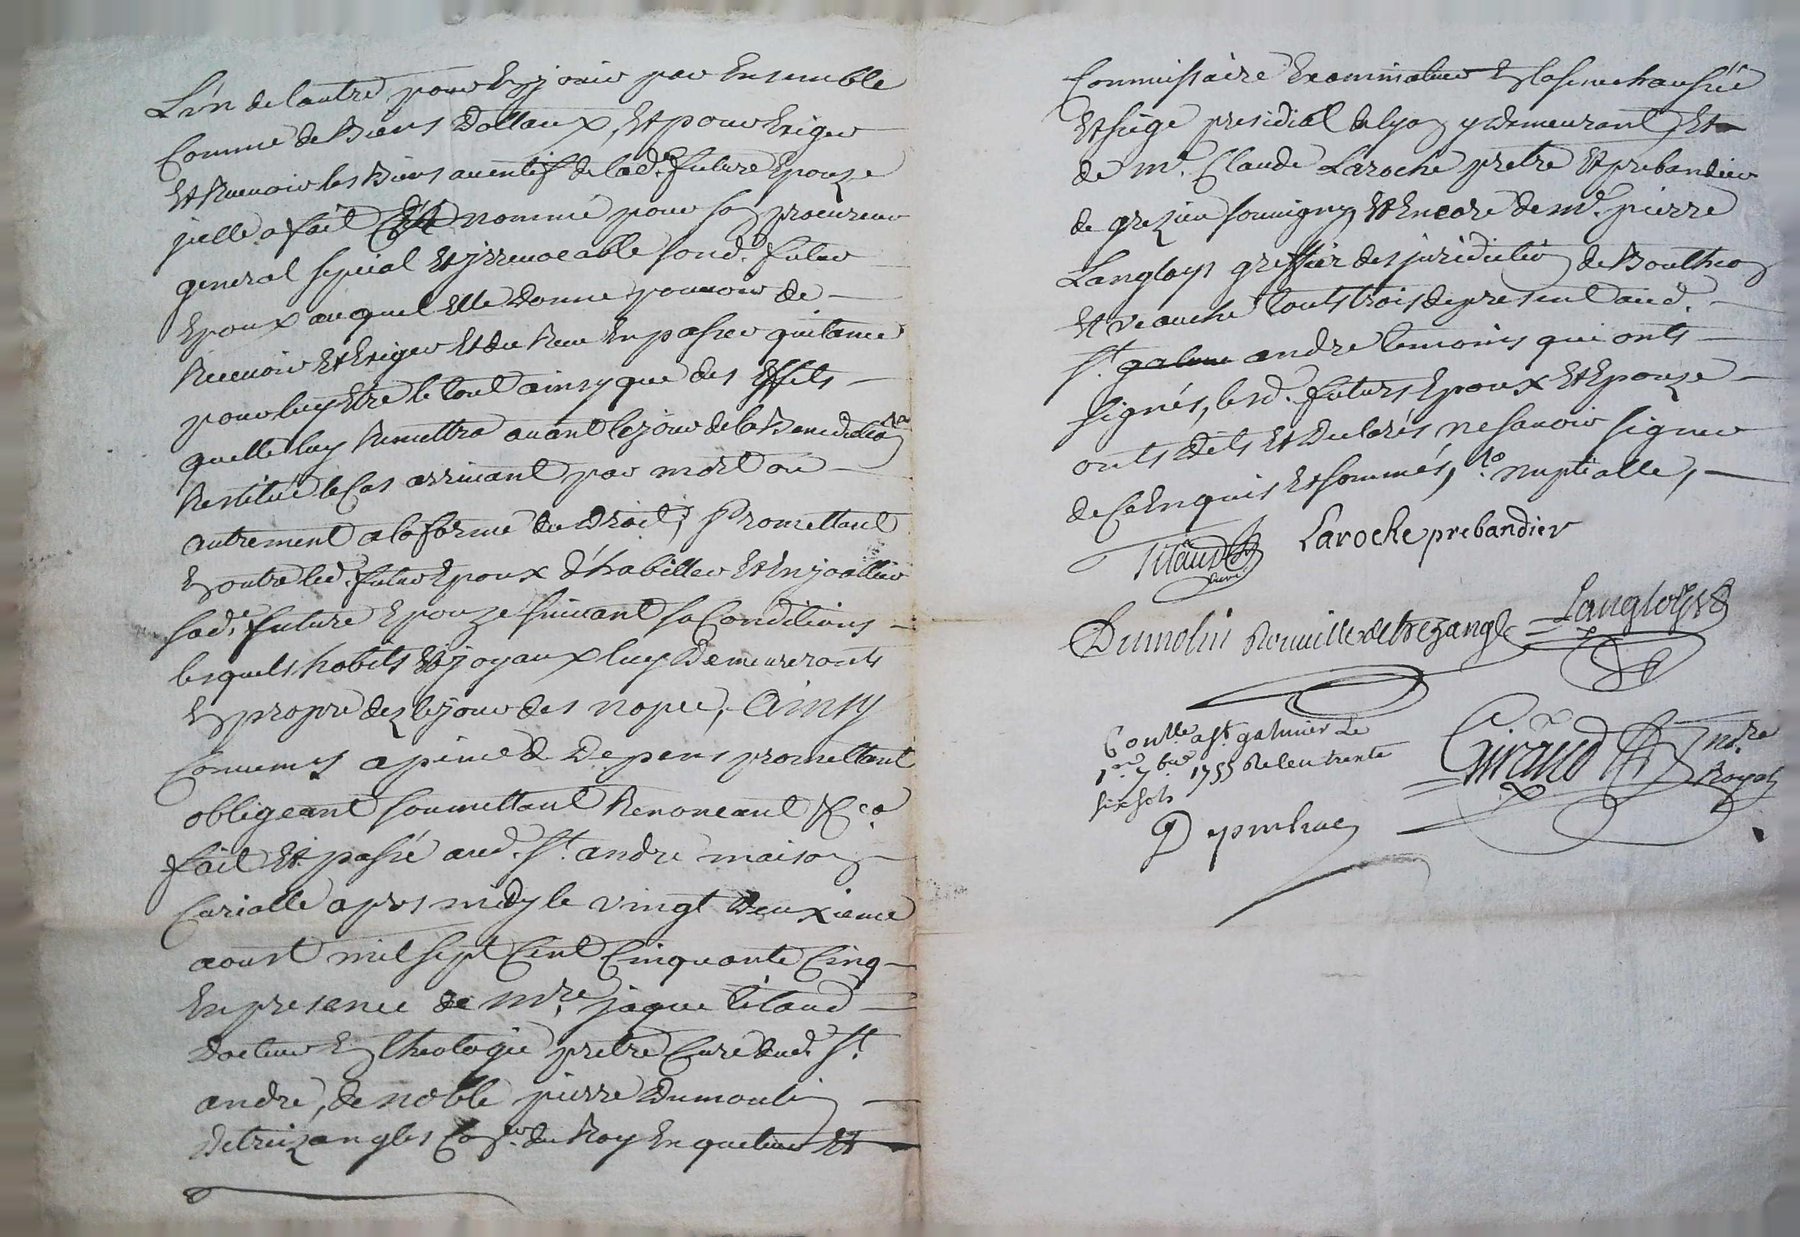 L'un de lautre pour Enjouir par Ensemble
Comme de Biens Dottaux, Et pour Exiger
Et Recevoir les Biens aventif de lad.e future Epouze
jcelle a fait Et nommé pour son procureur
general special Et jrrevocable sond. futur
Epoux auquel Elle Donne pouvoir de
Recevoir Et Exiger Et du Receu En passer quitance
pour luy Etre le tout ainsy que des Effets
quelle luy Remettra avant le jour de la Benediction
Restitué le Cas arrivant par mort ou
autrement a la forme du Droit, Promettant
En outre led. futur Epoux d'habiller Et Enjoaller
sad.e future Epouze suivant sa Conditions
lesquels habits Et joyaux luy Demeureronts
En propre dez le jour des nopce, Ainsy
Convenus a peine de Depens promettant
obligeant soumettant Renonceant &c.a
fait Et passé aud. St. andré maison
Curialle apres midy le vingt Deuxieme
aoust mil sept Cent Cinquante Cinq
En presence de Mre. jaque Titaud
Docteur En theologie prêtre Curé dud. St.
andré, de noble pierre Dumoulin
Detreizangles Con.er du Roy Enqueteur Et
Commissaire Examinateur En la senechaussée
Et siége presidial de lyon y demeurant, Et
de Mr. Claude Laroche prêtre Et prebandier
de grezieu souvigny, Et Encore de Mr. pierre
Langloys greffier des juridiction de Boutheon
Et veauche touts trois de present aud.
St. galmie andré temoins qui onts
signés, lesd. futurs Epoux Et Epouze
onts dits Et Declarés ne savoir signer
de Ce Enquis Et sommés, nuptialle,
Titaud Curé Laroche prebandier
Dumolin Rouville de trezangle Langloys
Conlle. a St. galmier Le
1er. 7bre 1755 Receu trente
six sols
Giraud nore. Royal